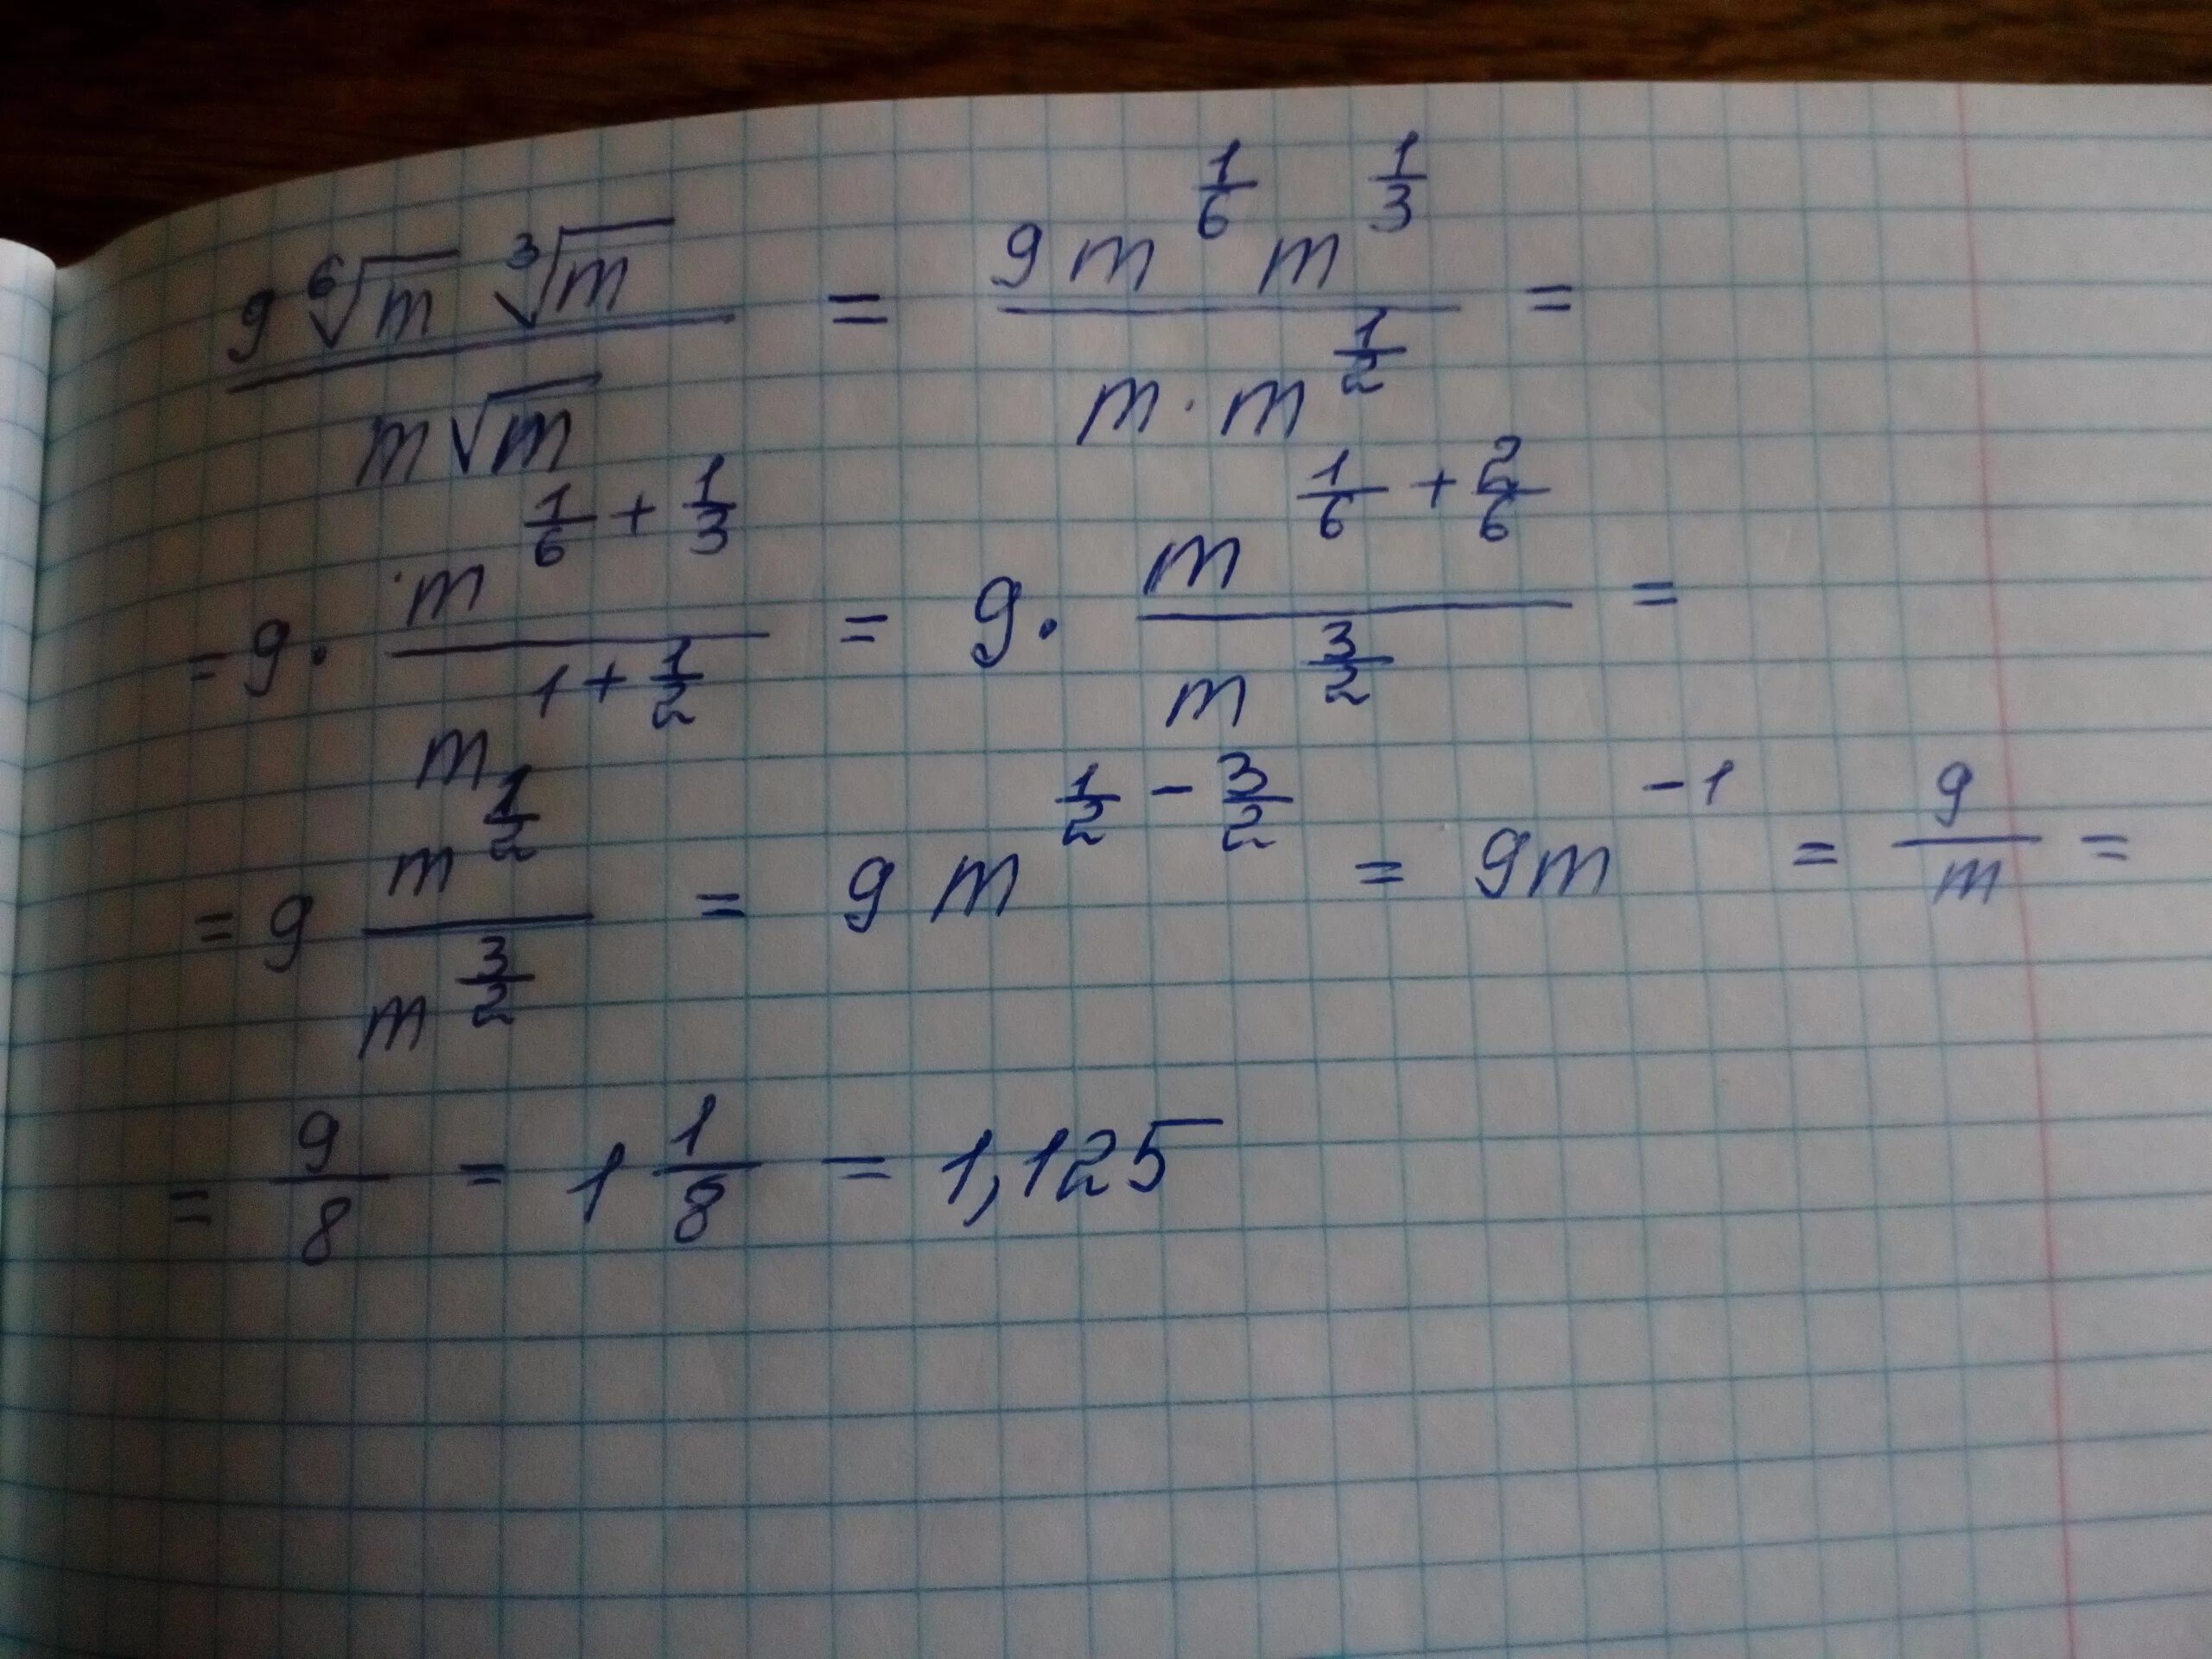 (9 ⁶√m ³√m)/(m√m) = (9m^(1/6) m^(1/3))/(m·m^(1/2)) =
= 9· (m^(1/6 + 1/3))/(m^(1 + 1/2)) = 9· (m^(1/6 + 2/6))/(m^(3/2)) =
= 9 (m^(1/2))/(m^(3/2)) = 9 m^(1/2 − 3/2) = 9m^(−1) = 9/m =
= 9/8 = 1 1/8 = 1,125